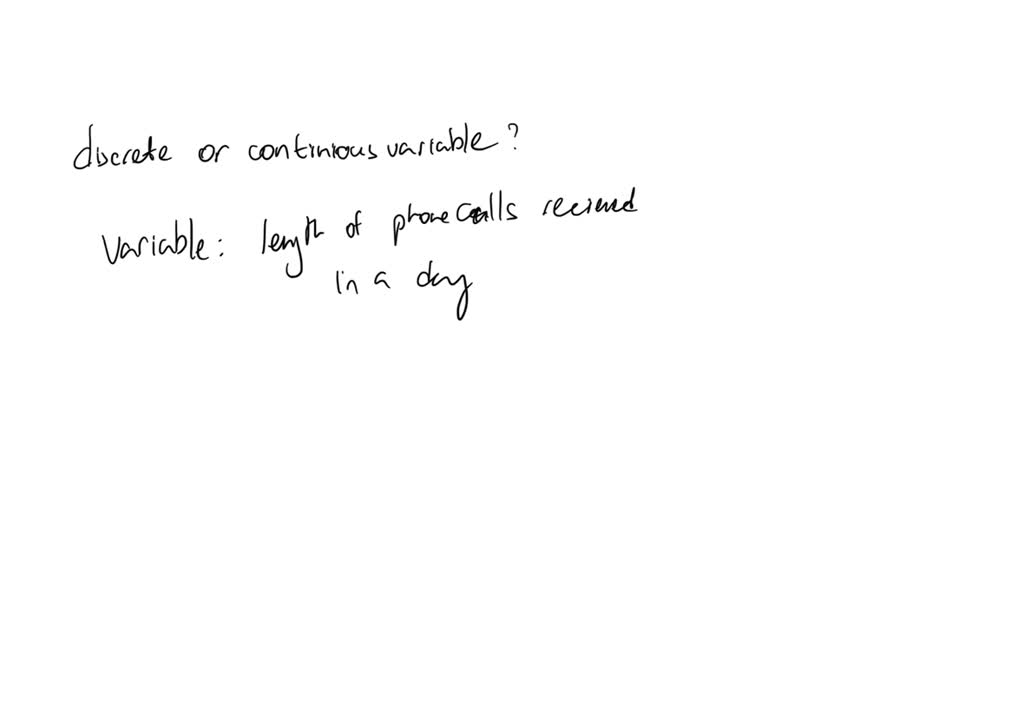 discrete or continious variable?
Variable: length of phone calls recieved
in a day